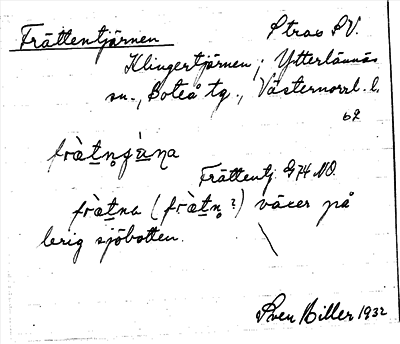 Frättentjärnen Strax SV.
Klingertjärnen, Ytterlännäs
sn., Boteå tg., Västernorrl. l.
62
frätn̥gɑ̀na
Frättentj. G74 NO
frὰtna (frὰtn̥?) växer på
lerig sjöbotten.
Sven Biller 1932